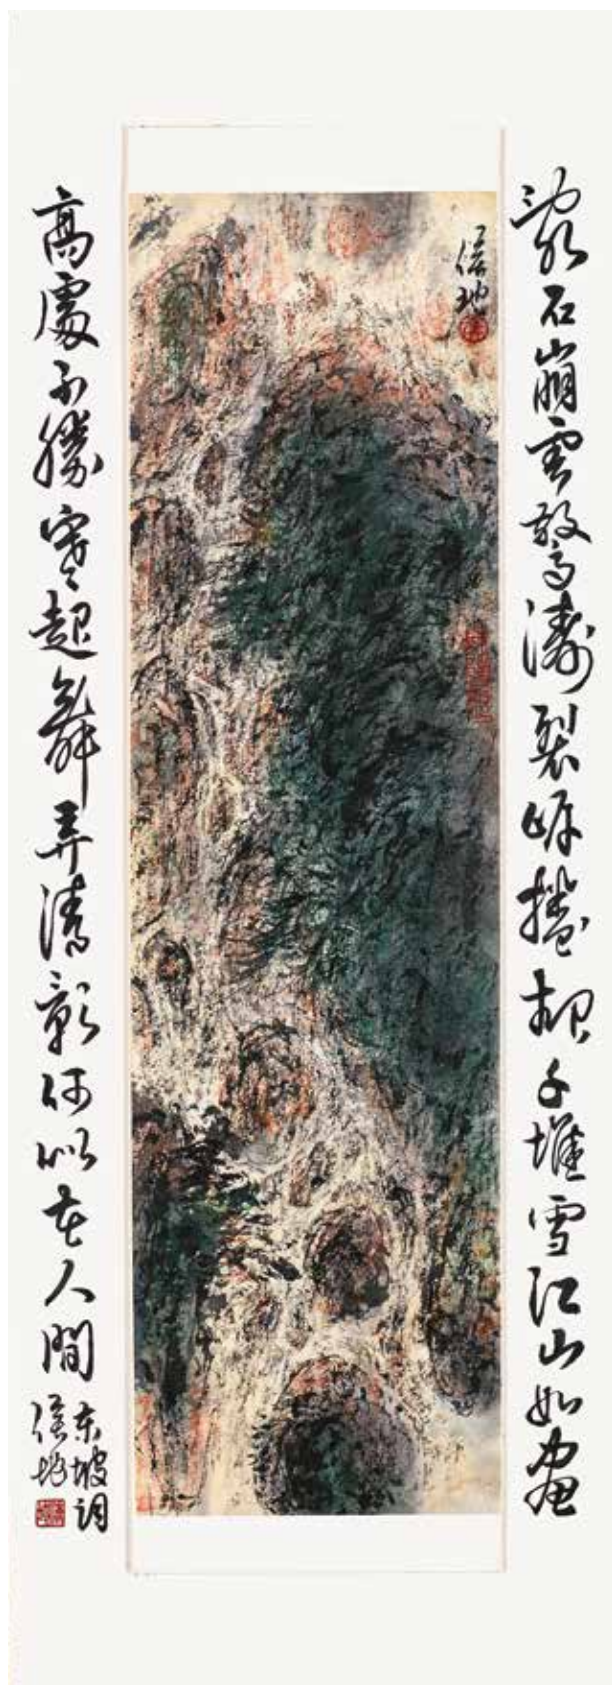 亂石崩雲驚濤裂岸捲起千堆雪江山如畫
高處不勝寒起舞弄清影何似在人間
东坡词